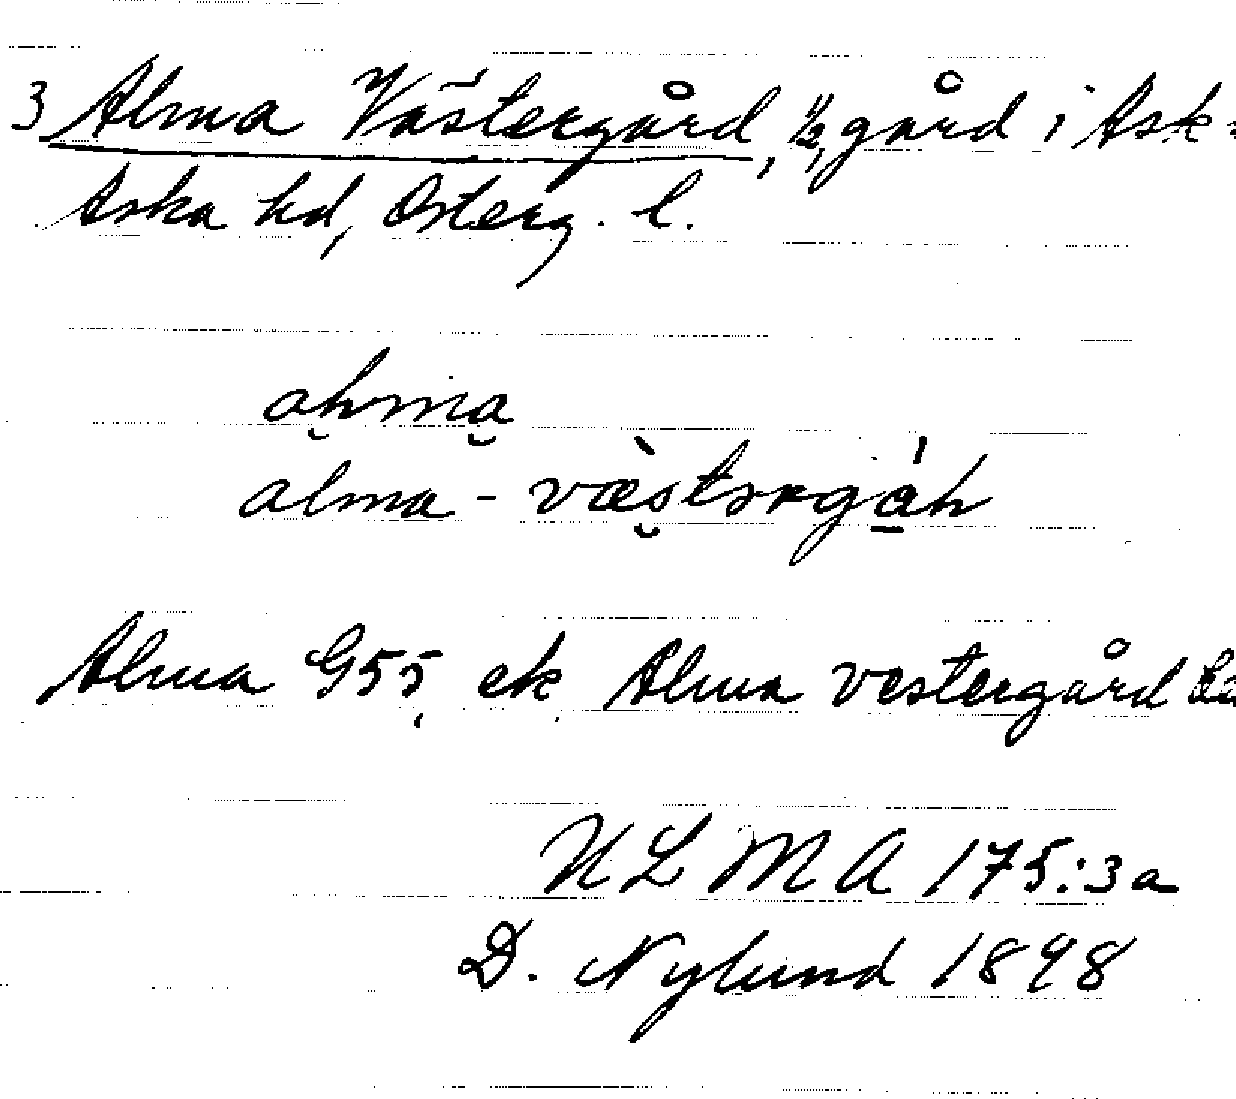 3 Alma Västergård, 1/2 gård i Ask=
Aska hd, Österg. l.
alma - 
Alma G55, ek Alma vestergård
ULMA 175:3a
D. Nylund 1898